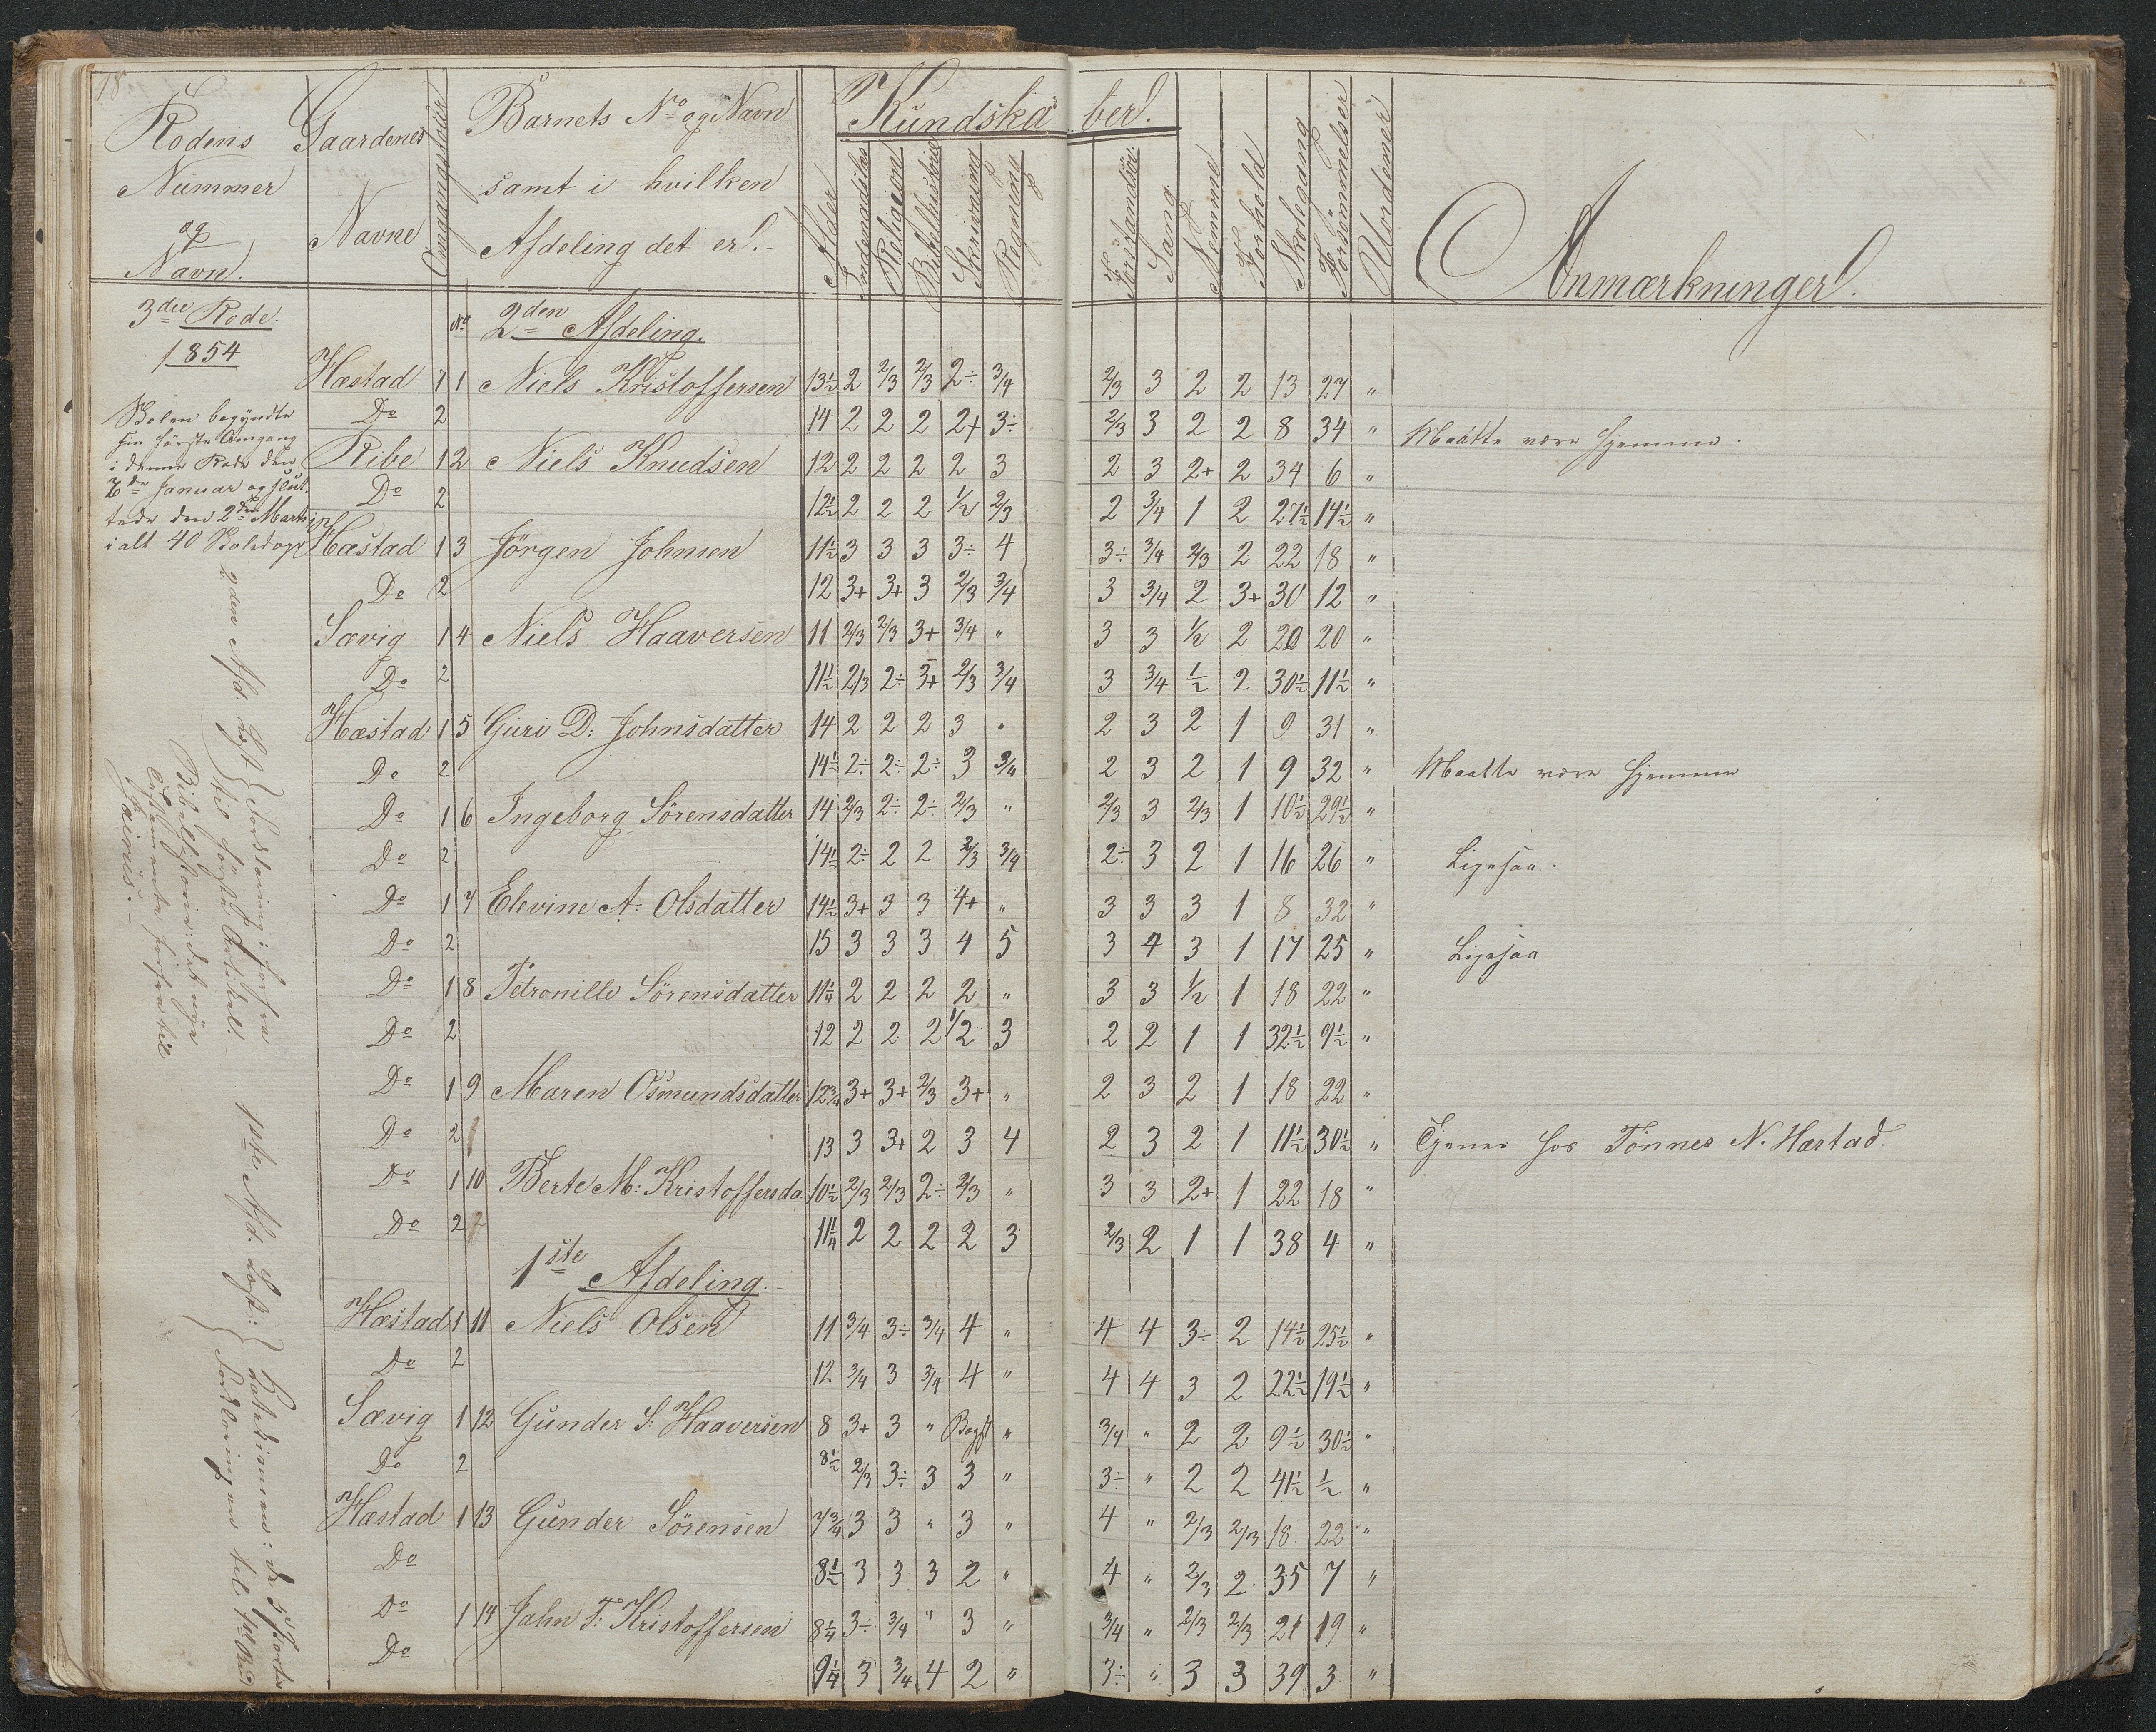 18
Rodens Nummer og Navn. | Gaardenes Navne | Omgangstour | Barnets No og Navn samt i hvilken Afdeling det er. | Alder | Kundskaber. | Indenadlæs | Religeion | Bibelhistorie | Skrivning | Regning | Forstandlæs: | Sang | Nemme | Forhold | Skolegang | Forsømmelser | Uordener | Anmærkninger.
3die Rode.
1854
No 2den Afdeling.
Hæstad 1 1 Niels Kristoffersen 13½ 2 2/3 2/3 2÷ 3/4 2/3 3 2 2 13 27 "
Do 2 14 2 2 2 2+ 3÷ 2/3 3 2 2 8 34 " Maatte være hjemme.
Ribe 1 2 Niels Knudsen 12 2 2 2 2 3 2 3 2+ 2 34 6 "
Do 2 12½ 2 2 2 1/2 2/3 2 3/4 1 2 27½ 14½ "
Hæstad 1 3 Jörgen Johnsen 11½ 3 3 3 3÷ 4 3÷ 3/4 2/3 2 22 18 "
Do 2 12 3+ 3+ 3 2/3 3/4 3 3/4 2 3+ 30 12 "
Sævig 1 4 Niels Haaversen 11 2/3 2/3 3+ 3/4 " 3 3 1/2 2 20 20 "
Do 2 11½ 2/3 2÷ 3+ 2/3 3/4 3 3/4 1/2 2 30½ 11½ "
Hæstad 1 5 Guri D: Johnsdatter 14 2 2 2 3 " 2 3 2 1 9 31 "
Do 2 14½ 2÷ 2÷ 2÷ 3 3/4 2 3 2 1 9 32 " Maatte være hjemme
Do 1 6 Ingeborg Sörensdatter 14 2/3 2÷ 2÷ 2/3 " 2/3 3 2/3 1 10½ 29½ "
Do 2 14½ 2÷ 2 2 2/3 3/4 2÷ 3 2 1 16 26 " Ligesaa.
Do 1 7 Elevine A: Olsdatter 14½ 3+ 3 3 4+ " 3 3 3 1 8 32 "
Do 2 15 3 3 3 4 5 3 4 3 1 17 25 " Ligesaa
Do 1 8 Petronille Sörensdatter 11¼ 2 2 2 2 " 3 3 1/2 1 18 22 "
Do 2 12 2 2 2 1/2 3 2 2 1 1 32½ 9½ "
Do 1 9 Maren Osmundsdatter 12¾ 3+ 3+ 2/3 3+ " 2 3 2 1 18 22 "
Do 2 13 3 3+ 2 3 4 2 3 2 1 11½ 30½ " Tjener hos Tönnes N. Hæstad.
Do 1 10 Berte M: Kristoffersda. 10½ 2/3 2/3 2÷ 2/3 " 3 3 2+ 1 22 18 "
Do 2 11¼ 2 2 2 2 3 2/3 2 1 1 38 4 "
1ste Afdeling.
Hæstad 1 11 Niels Olsen 11 3/4 3÷ 3/4 4 " 4 4 3÷ 2 14½ 25½ "
Do 2 12 3/4 3 3/4 4 " 4 4 3 2 22½ 19½ "
Sævig 1 12 Gunder S: Haaversen 8 3+ 3 " Begy " 3/4 " 2 2 9½ 30½ "
Do 2 8½ 2/3 3÷ 3 3 " 3÷ " 2 2 41½ ½ "
Hæstad 1 13 Gunder Sörensen 7¾ 3 3 " 3 " 4 " 2/3 2/3 18 22 "
Do 8½ 3 3 3 2 " 4 " 2/3 2 35 7 "
Do 1 14 Jahn T: Kristoffersen 8¼ 3÷ 3/4 " 3 " 3/4 " 2/3 2/3 21 19 "
Do 9¼ 3 3/4 4 2 " 3÷ " 3 3 39 3 "
Skolen begyndte
sin första Omgang
i denne Rode den
7de Januar og slut-
tede den 2den Marts
ialt 40 Skoledage
2den Afd. Læst { Forklaring: forfra
til förste Artikel.
Bibelhistorie: det nye
Testamente forfra til
Jairus.
1ste Afd. Læst: { Katekismen: de 5 Parter
Forklaringen til 4de Bud